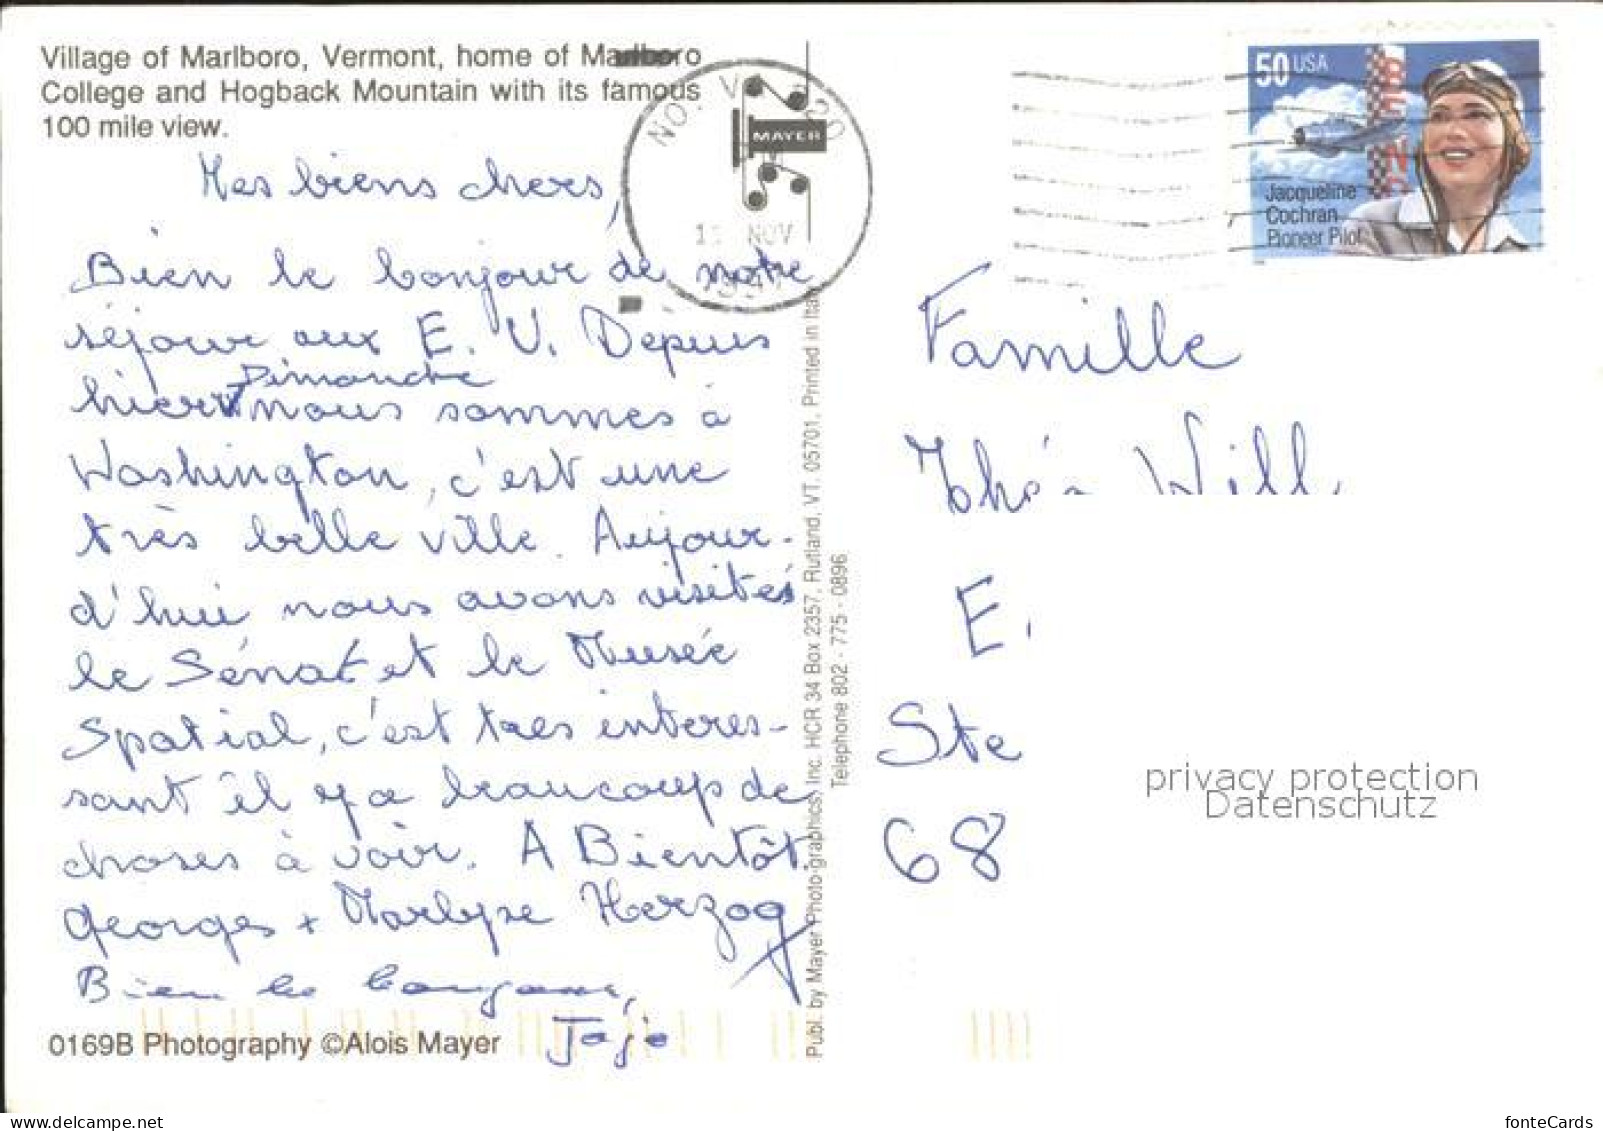 Village of Marlboro, Vermont, home of Marlboro
College and Hogback Mountain with its famous
100 mile view.
MAYER
NOV
1997
50 USA
BENDIX
Jacqueline
Cochran
Pioneer Pilot
Mes biens chers,
Bien le bonjour de notre
séjour aux E. U. Depuis
hier Dimanche nous sommes à
Washington, c'est une
très belle ville. Aujour-
d'hui nous avons visités
le Sénat et le Musée
Spatial, c'est tres interes-
sant il y a beaucoup de
choses à voir. A Bientôt
Georges + Marlyse Herzog
Bien le bonjour,
Jojo
0169B Photography ©Alois Mayer
Publ. by Mayer Photo-graphics, Inc. HCR 34 Box 2357, Rutland, VT. 05701, Printed in Italy
Telephone 802 - 775 - 0896
Famille
Will
E.
Ste
68
privacy protection
Datenschutz
delcampe.net
fonteCards